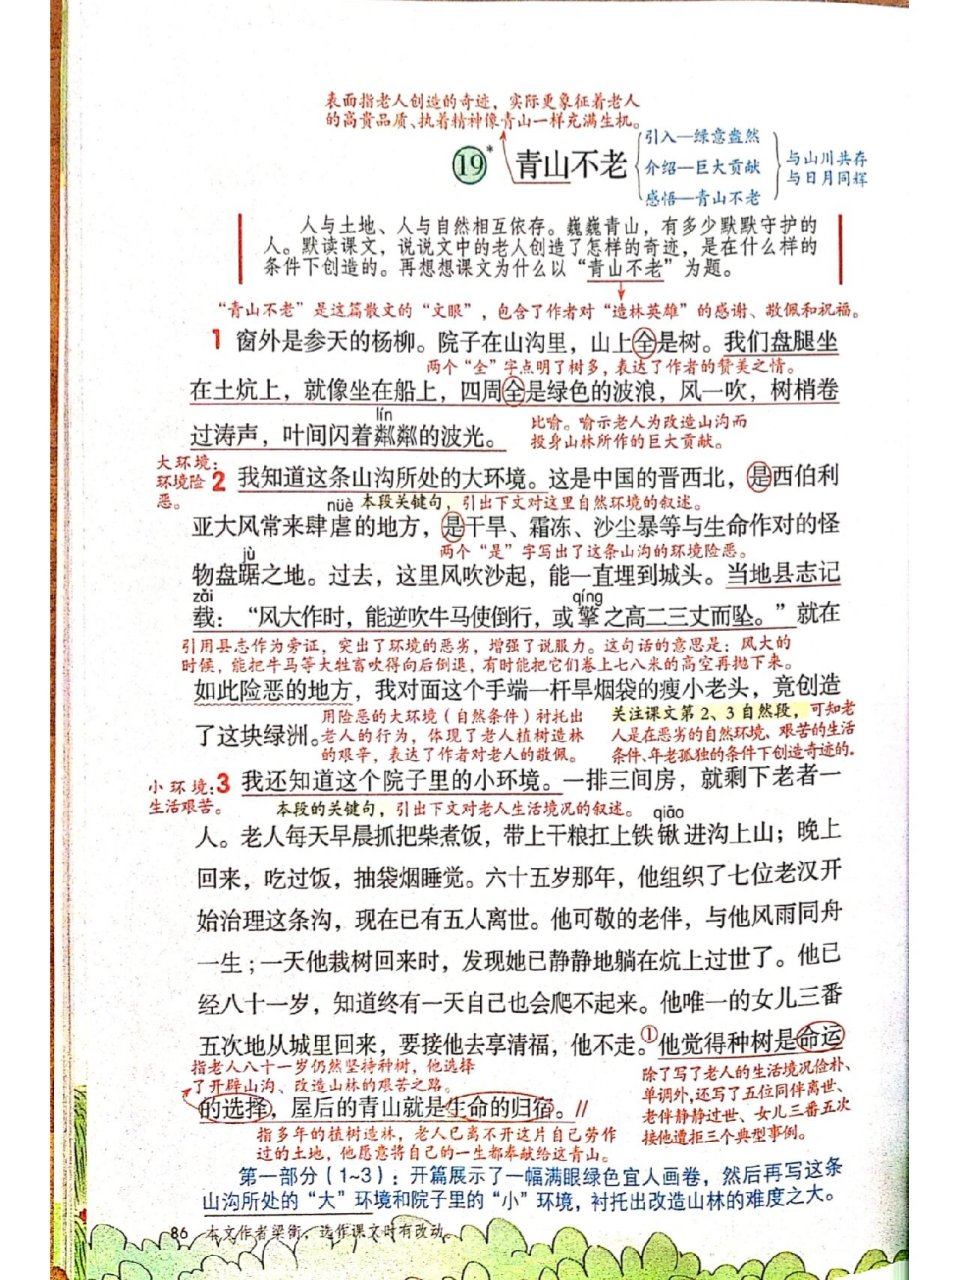 表面指老人创造的奇迹，实际更象征着老人
的高贵品质、执着精神像青山一样充满生机。
19* 青山不老
引入—绿意盎然
介绍—巨大贡献
感悟—青山不老
与山川共存
与日月同辉
人与土地、人与自然相互依存。巍巍青山，有多少默默守护的
人。默读课文，说说文中的老人创造了怎样的奇迹，是在什么样的
条件下创造的。再想想课文为什么以“青山不老”为题。
“青山不老”是这篇散文的“文眼”，包含了作者对“造林英雄”的感谢、敬佩和祝福。
1 窗外是参天的杨柳。院子在山沟里，山上全是树。我们盘腿坐
两个“全”字点明了树多，表达了作者的赞美之情。
在土炕上，就像坐在船上，四周全是绿色的波浪，风一吹，树梢卷
lín
过涛声，叶间闪着粼粼的波光。
比喻。喻示老人为改造山沟而
投身山林所作的巨大贡献。
大环境：
环境险
恶。
2 我知道这条山沟所处的大环境。这是中国的晋西北，是西伯利
nüè
本段关键句，引出下文对这里自然环境的叙述。
亚大风常来肆虐的地方，是干旱、霜冻、沙尘暴等与生命作对的怪
两个“是”字写出了这条山沟的环境险恶。
jù
物盘踞之地。过去，这里风吹沙起，能一直埋到城头。当地县志记
zǎi
qíng
载：“风大作时，能逆吹牛马使倒行，或擎之高二三丈而坠。”就在
引用县志作为旁证，突出了环境的恶劣，增强了说服力。这句话的意思是：风大的
时候，能把牛马等大牲畜吹得向后倒退，有时能把它们卷上七八米的高空再抛下来。
如此险恶的地方，我对面这个手端一杆旱烟袋的瘦小老头，竟创造
了这块绿洲。
用险恶的大环境（自然条件）衬托出
老人的行为，体现了老人植树造林
的艰辛，表达了作者对老人的敬佩。
关注课文第2、3自然段，可知老
人是在恶劣的自然环境、艰苦的生活
条件、年老孤独的条件下创造奇迹的。
小环境：
生活艰苦。
3 我还知道这个院子里的小环境。一排三间房，就剩下老者一
本段的关键句，引出下文对老人生活境况的叙述。
qiāo
人。老人每天早晨抓把柴煮饭，带上干粮扛上铁锹进沟上山；晚上
回来，吃过饭，抽袋烟睡觉。六十五岁那年，他组织了七位老汉开
始治理这条沟，现在已有五人离世。他可敬的老伴，与他风雨同舟
一生；一天他栽树回来时，发现她已静静地躺在炕上过世了。他已
经八十一岁，知道终有一天自己也会爬不起来。他唯一的女儿三番
五次地从城里回来，要接他去享清福，他不走。①他觉得种树是命运
指老人八十一岁仍然坚持种树，他选择
了开辟山沟、改造山林的艰苦之路。
的选择，屋后的青山就是生命的归宿。//
指多年的植树造林，老人已离不开这片自己劳作
过的土地，他愿意将自己的一生都奉献给这青山。
除了写了老人的生活境况俭朴、
单调外，还写了五位同伴离世、
老伴静静过世、女儿三番五次
接他遭拒三个典型事例。
第一部分（1~3）：开篇展示了一幅满眼绿色宜人画卷，然后再写这条
山沟所处的“大”环境和院子里的“小”环境，衬托出改造山林的难度之大。
86 本文作者梁衡，选作课文时有改动。